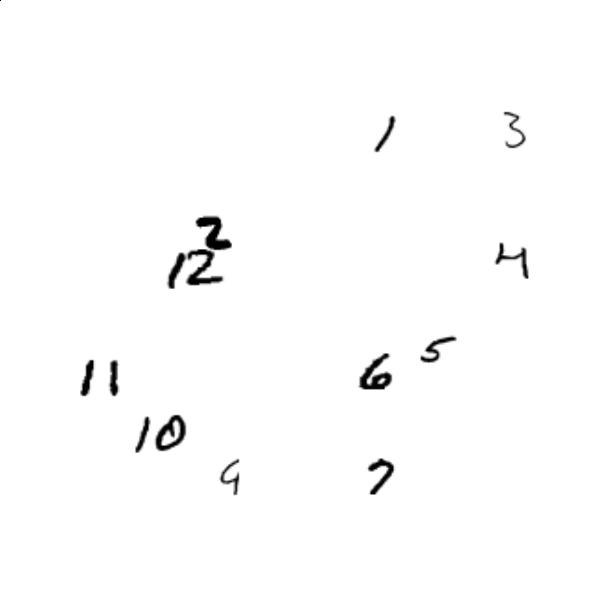 1 3
2
12 4
5
11 6
10
9 7